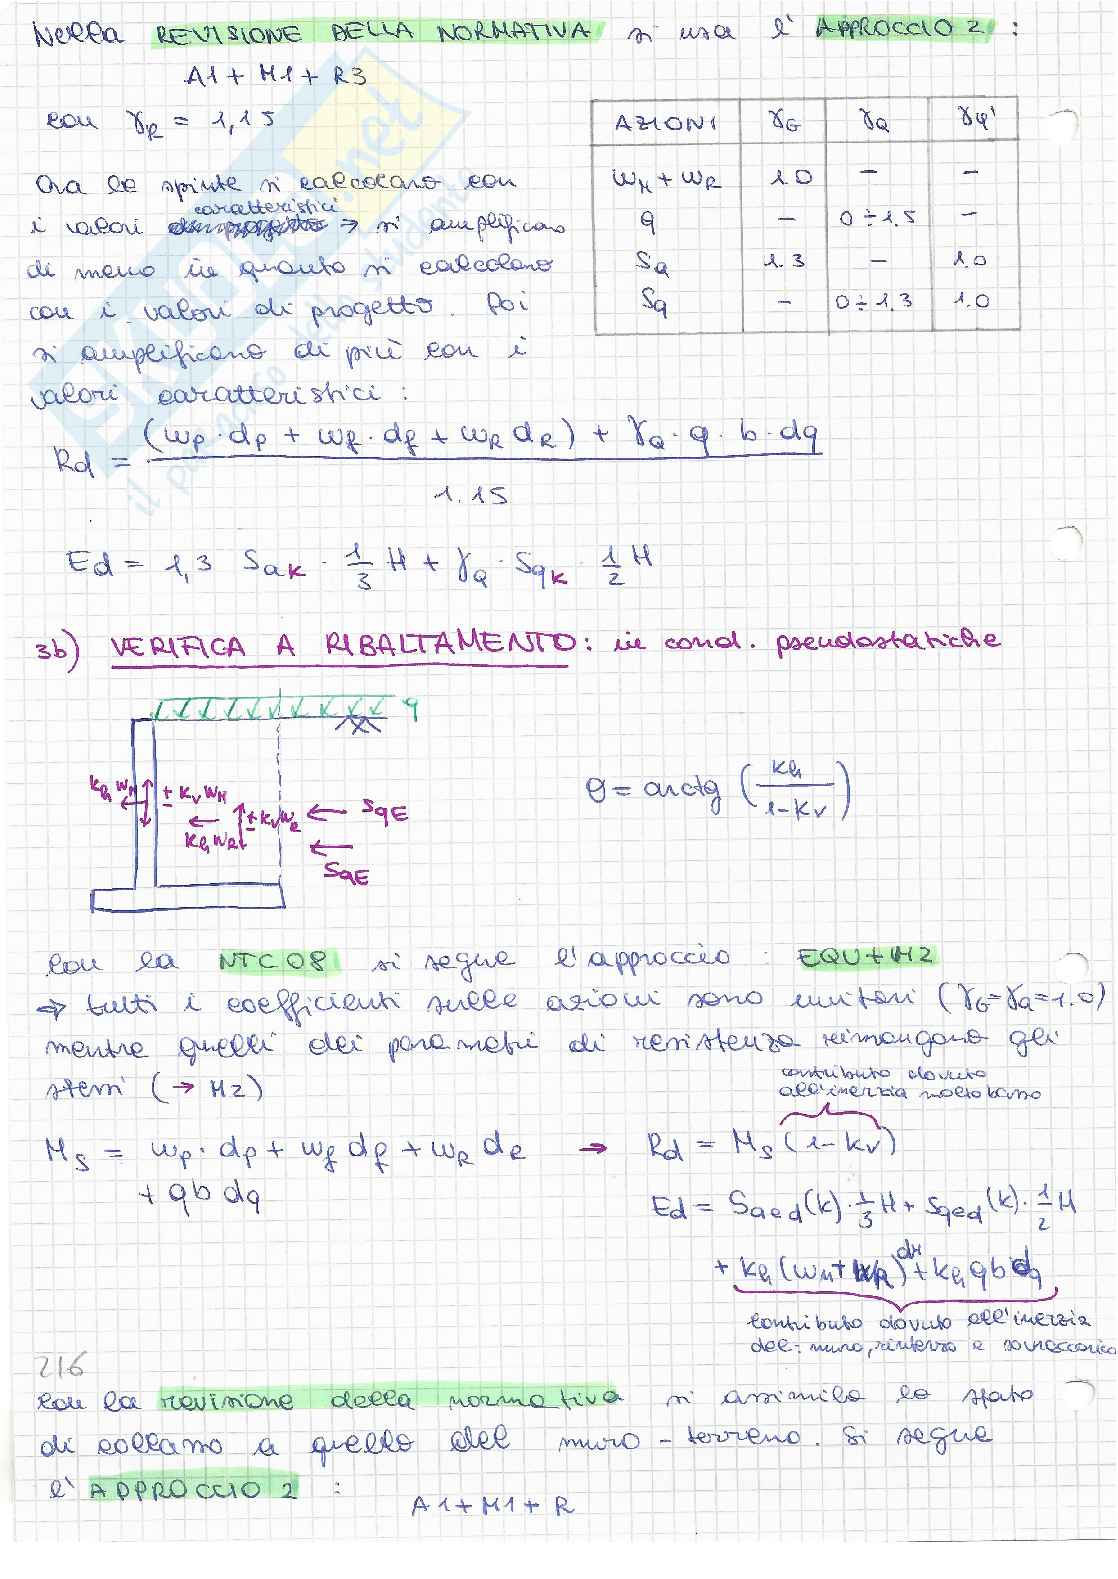 Nella REVISIONE DELLA NORMATIVA si usa l'APPROCCIO 2 :
A1 + M1 + R3
con γR = 1,15
AZIONI γG γQ γφ'
WM + WR 1.0 - -
q - 0÷1.5 -
Sa 1.3 - 1.0
Sq - 0÷1.3 1.0
Ora le spinte si calcolano con
caratteristici
i valori → si amplificano
di meno in quanto si calcolano
con i valori di progetto. Poi
si amplificano di più con i
valori caratteristici :
Rd = (WP · dP + Wf · df + WR dR) + γQ · q · b · dq / 1.15
Ed = 1,3 Sak · 1/3 H + γQ · Sqk · 1/2 H
3b) VERIFICA A RIBALTAMENTO: in cond. pseudostatiche
q
kh WM ± kv WM
± kv WR
kh WR
SqE
SaE
θ = arctg (kh / 1-kv)
Con la NTC 08 si segue l'approccio : EQU+M2
⇒ tutti i coefficienti sulle azioni sono unitari (γG=γQ=1.0)
mentre quelli dei parametri di resistenza rimangono gli
stessi (→ M2)
contributo dovuto
all'inerzia
MS = WP · dP + Wf df + WR dR → Rd = MS (1-kv)
+ qb dq
Ed = Saed(k) · 1/3 H + Sqed(k) · 1/2 H
+ kh (WM + WR) dr + kh qb dq
Contributo dovuto all'inerzia
del: muro, rinterro e sovraccarico
216
Con la revisione della normativa si assimila lo stato
di collasso a quello del muro-terreno. Si segue
l'APPROCCIO 2 :
A1+M1+R
SKUOLA.net
il paradiso dello studente